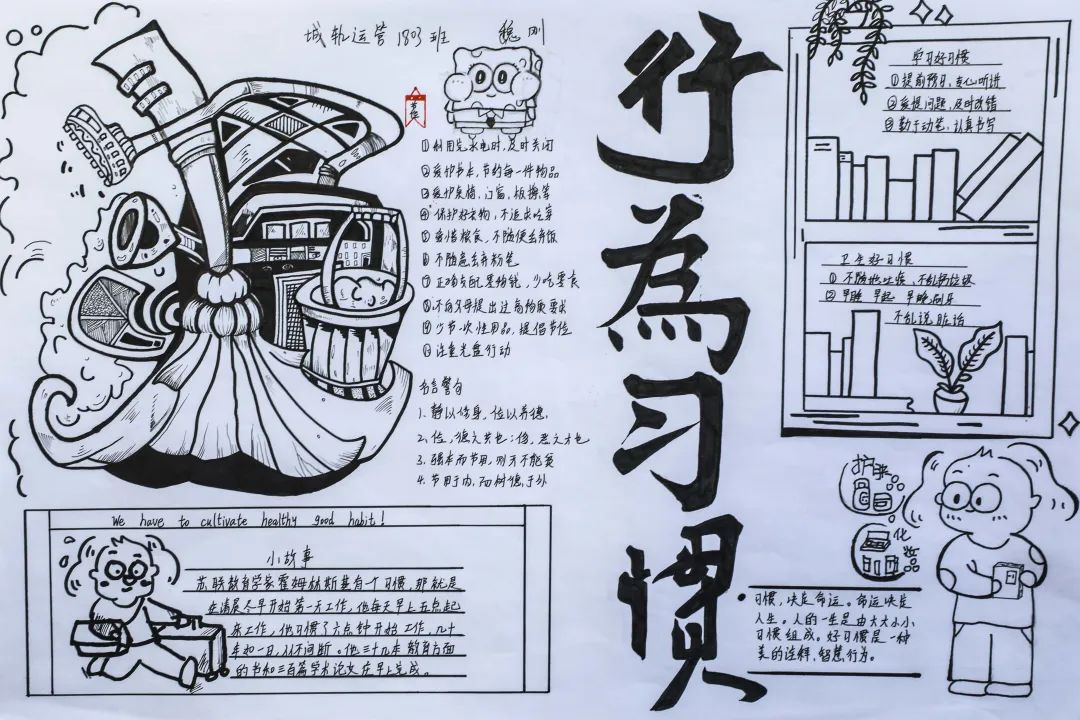 城轨运营1803班 魏刚
节俭
①利用完水电时,及时关闭
②爱护书本,节约每一件物品
③爱护桌椅、门窗、板擦等
④保护好衣物,不追求吃穿
⑤爱惜粮食,不随便丢弃饭
⑥不随意丢弃粉笔
⑦正确支配零钱,少吃零食
⑧不向父母提出过高物质要求
⑨少节一次性用品,提倡节俭
⑩注重光盘行动
名言警句
1、静以修身,俭以养德。
2、俭,德之共也;侈,恶之大也
3、强本而节用,则天不能贫
4、节用于内,而树德于外
行為习惯
学习好习惯
①提前预习,专心听讲
②爱提问题,及时改错
③勤于动笔,认真书写
卫生好习惯
①不随地吐痰,不乱扔垃圾
②早睡 早起 早晚刷牙
不乱说脏话
护肤
化妆
We have to cultivate healthy good habit!
小故事
苏联教育学家霍姆林斯基有个习惯,那就是
在清晨尽早开始第一天工作,他每天早上五点起
床工作,他习惯了六点钟开始工作,几十
年如一日,从不间断。他三十几本教育方面
的书和三百篇学术论文在早上完成。
习惯,决定命运。命运决定
人生。人的一生是由大大小小
习惯组成。好习惯是一种
美的诠释,智慧行为。